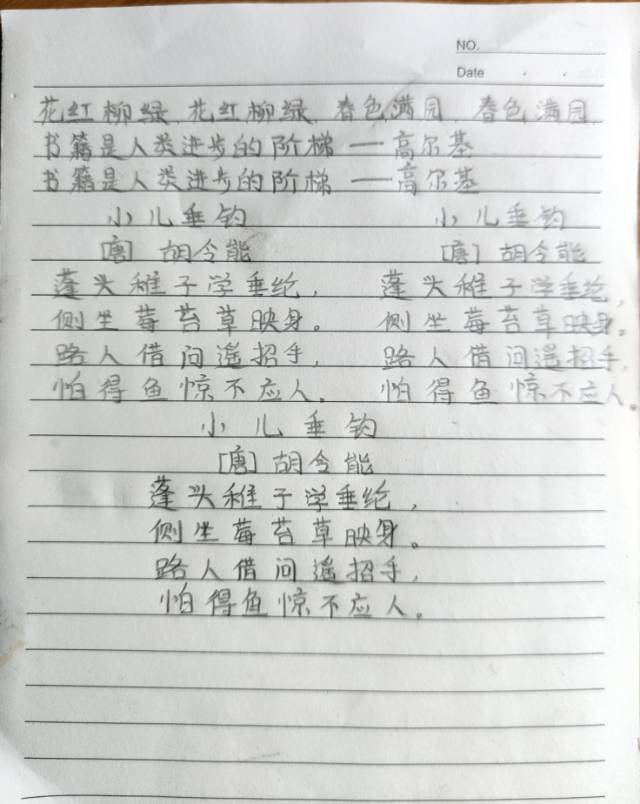 NO.
Date
花红柳绿 花红柳绿 春色满园 春色满园
书籍是人类进步的阶梯——高尔基
书籍是人类进步的阶梯——高尔基
小儿垂钓 小儿垂钓
[唐] 胡令能 [唐] 胡令能
蓬头稚子学垂纶, 蓬头稚子学垂纶,
侧坐莓苔草映身。 侧坐莓苔草映身。
路人借问遥招手, 路人借问遥招手,
怕得鱼惊不应人。 怕得鱼惊不应人。
小儿垂钓
[唐] 胡令能
蓬头稚子学垂纶,
侧坐莓苔草映身。
路人借问遥招手,
怕得鱼惊不应人。